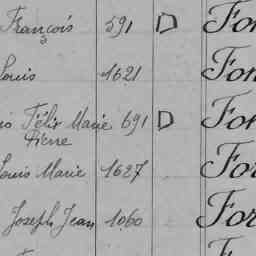 François 591 D Fon
Louis 1621 Fon
is Félix Marie 691 D For
Pierre
Louis Marie 1627 For
Joseph Jean 1060 For